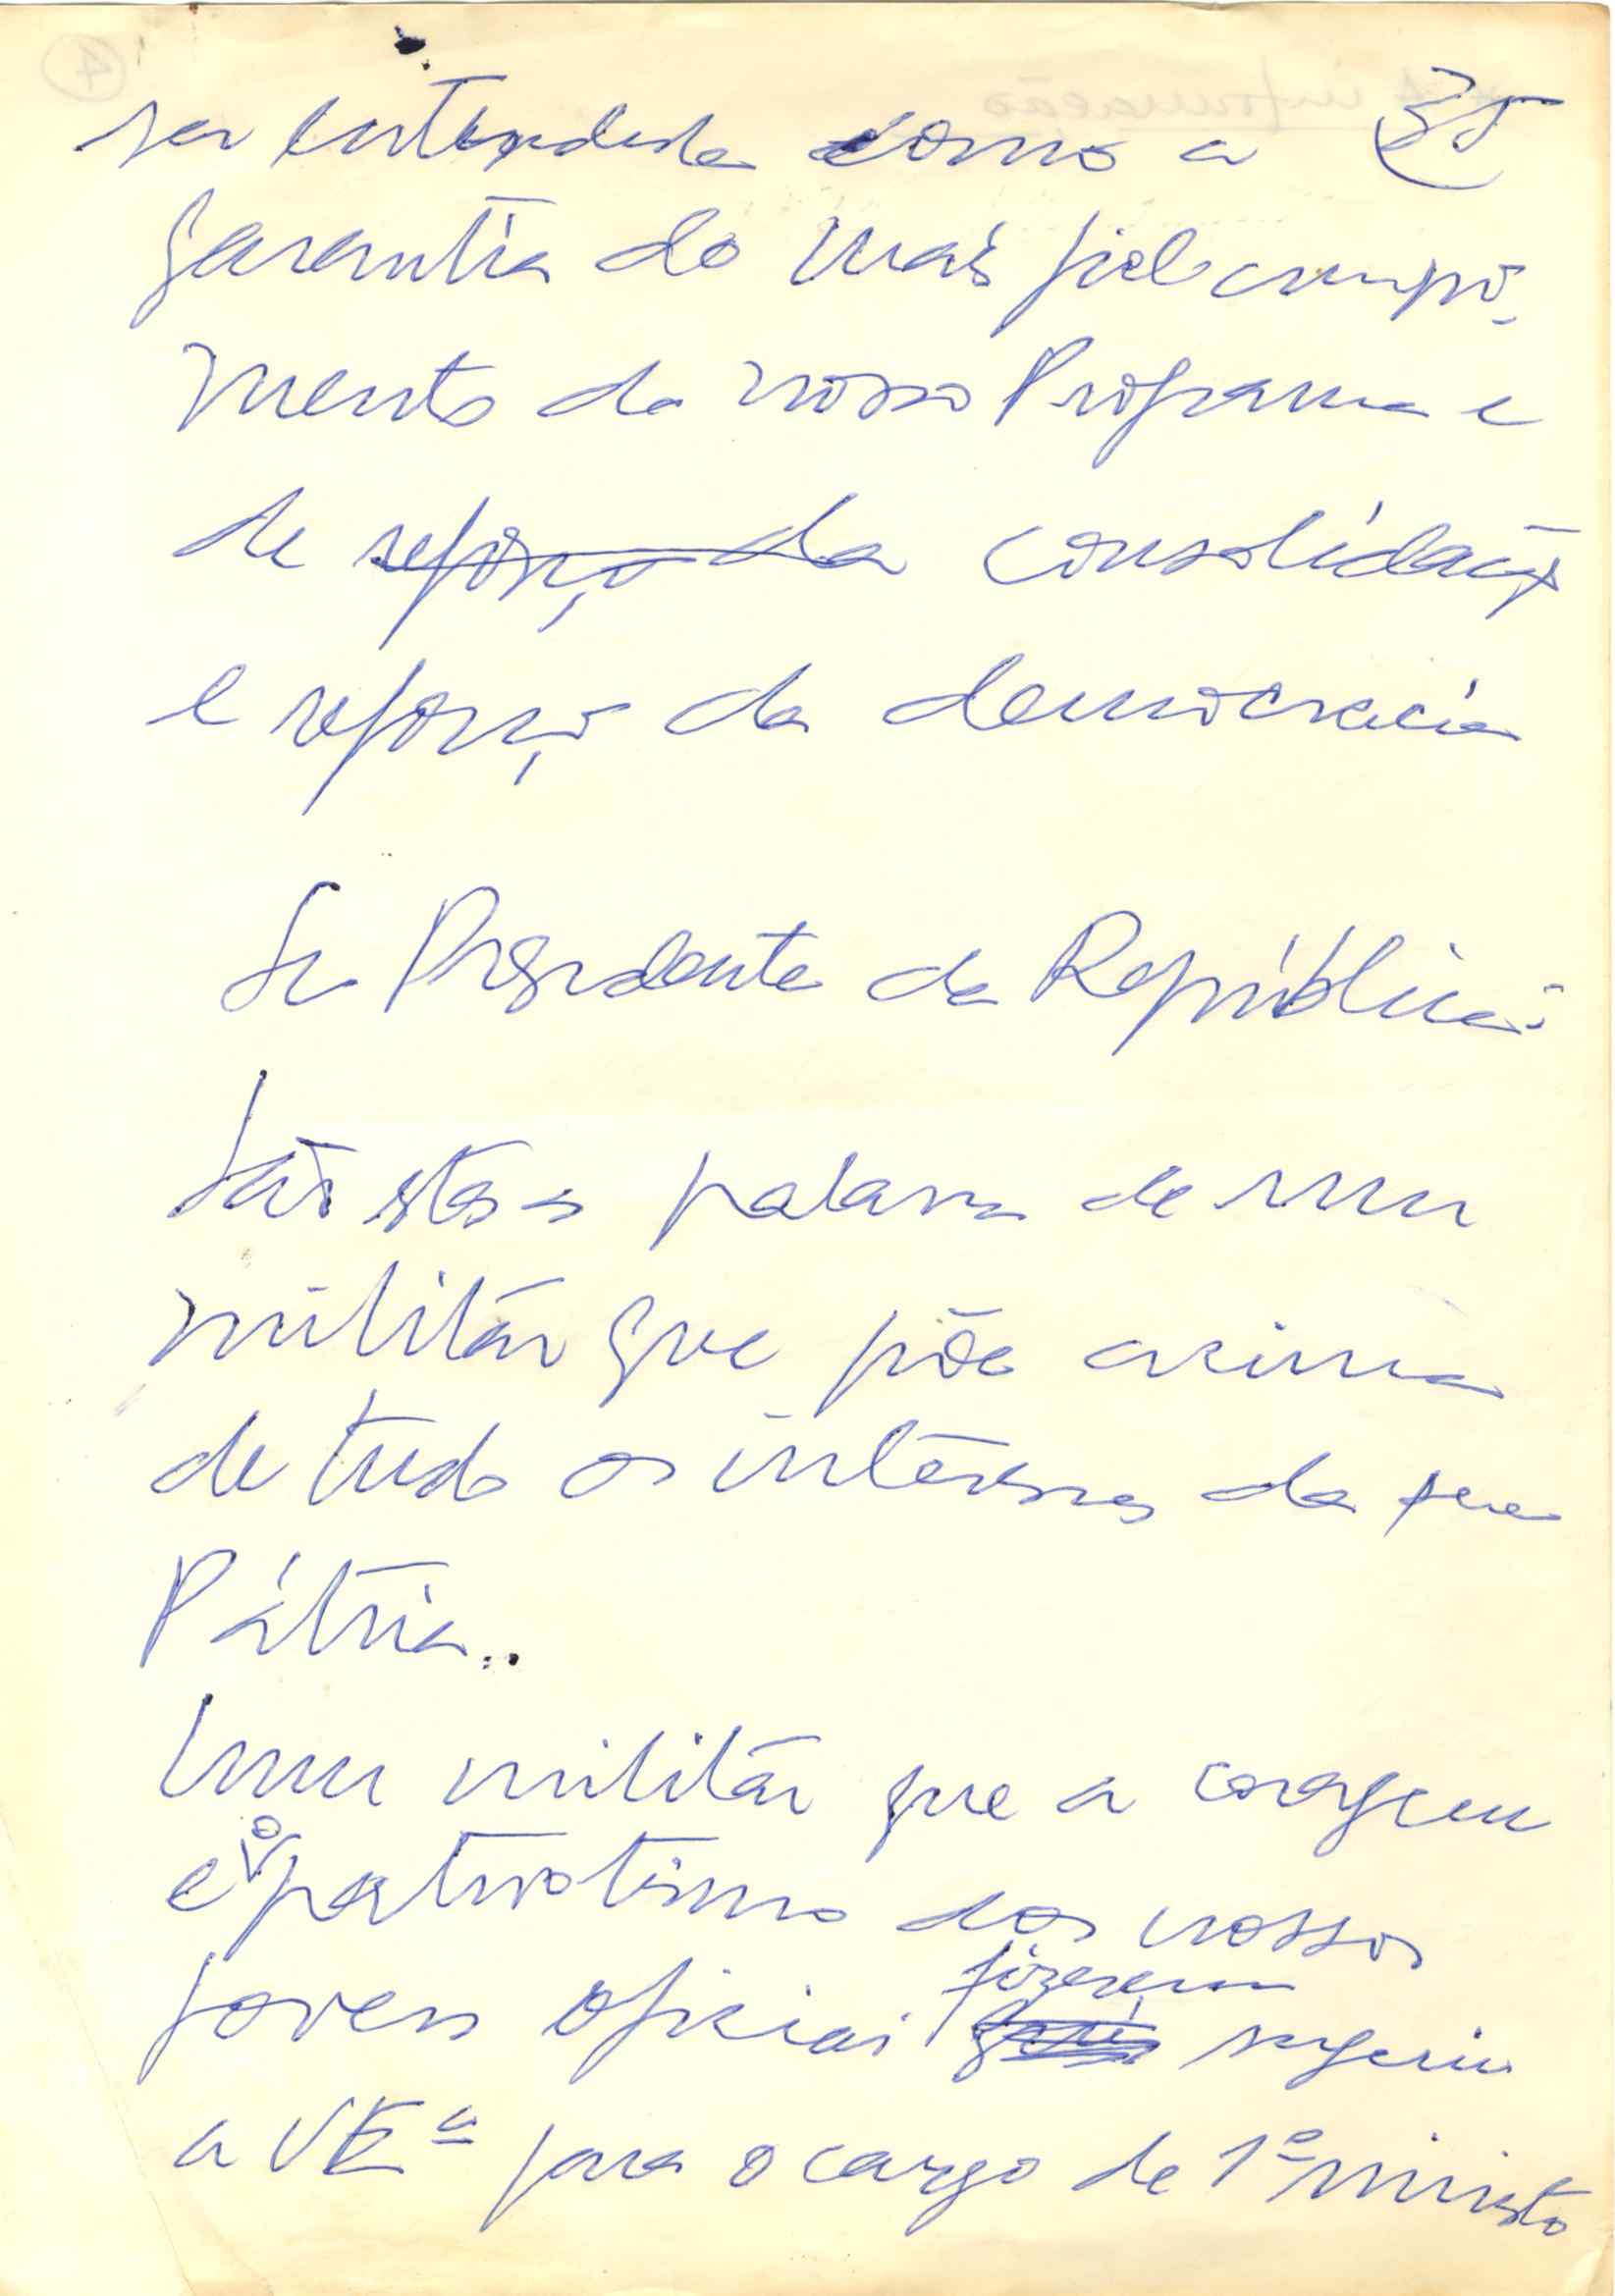 ser entendida como a
garantia do mais fiel cumpri-
mento do nosso Programa e
de reforço da consolidação
e reforço da democracia
Sr Presidente da República:
São estas as palavras de um
militar que põe acima
de tudo os interesses da sua
Pátria..
Um militar que a coragem
e o patriotismo dos nossos
jovens oficiais fizeram sugerir
a VEª para o cargo de 1º ministro